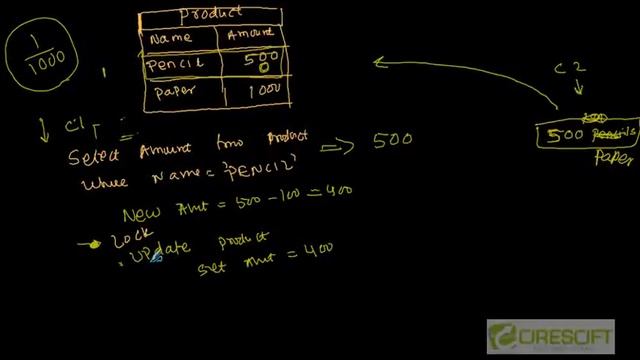 Product
Name Amount
Pencil 500
0
Paper 1000
1
1000
C1
Select Amount from Product
Where Name = 'PENCIL'
=> 500
New Amt = 500 - 100 = 400
→ Lock
Update product
Set Amt = 400
C2
500 pencils
Paper
CIRESOFT